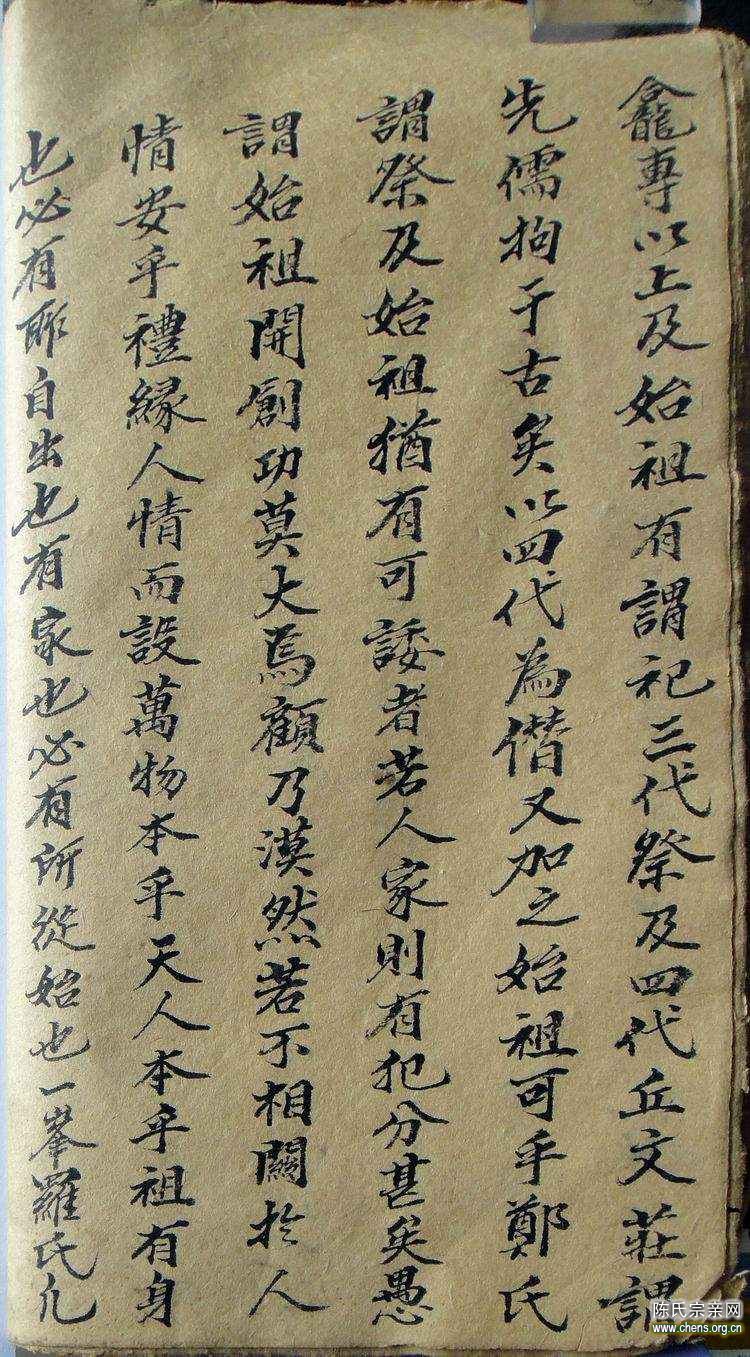 龕專以上及始祖有謂祀三代祭及四代丘文莊謂
先儒拘于古矣以四代為僭又加之始祖可乎鄭氏
謂祭及始祖猶有可諉者若人家則有犯分甚矣愚
謂始祖開創功莫大焉顧乃漠然若不相關於人
情安乎禮緣人情而設萬物本乎天人本乎祖有身
也必有所自出也有家也必有所從始也一峯羅氏凡
陈氏宗亲网
www.chens.org.cn